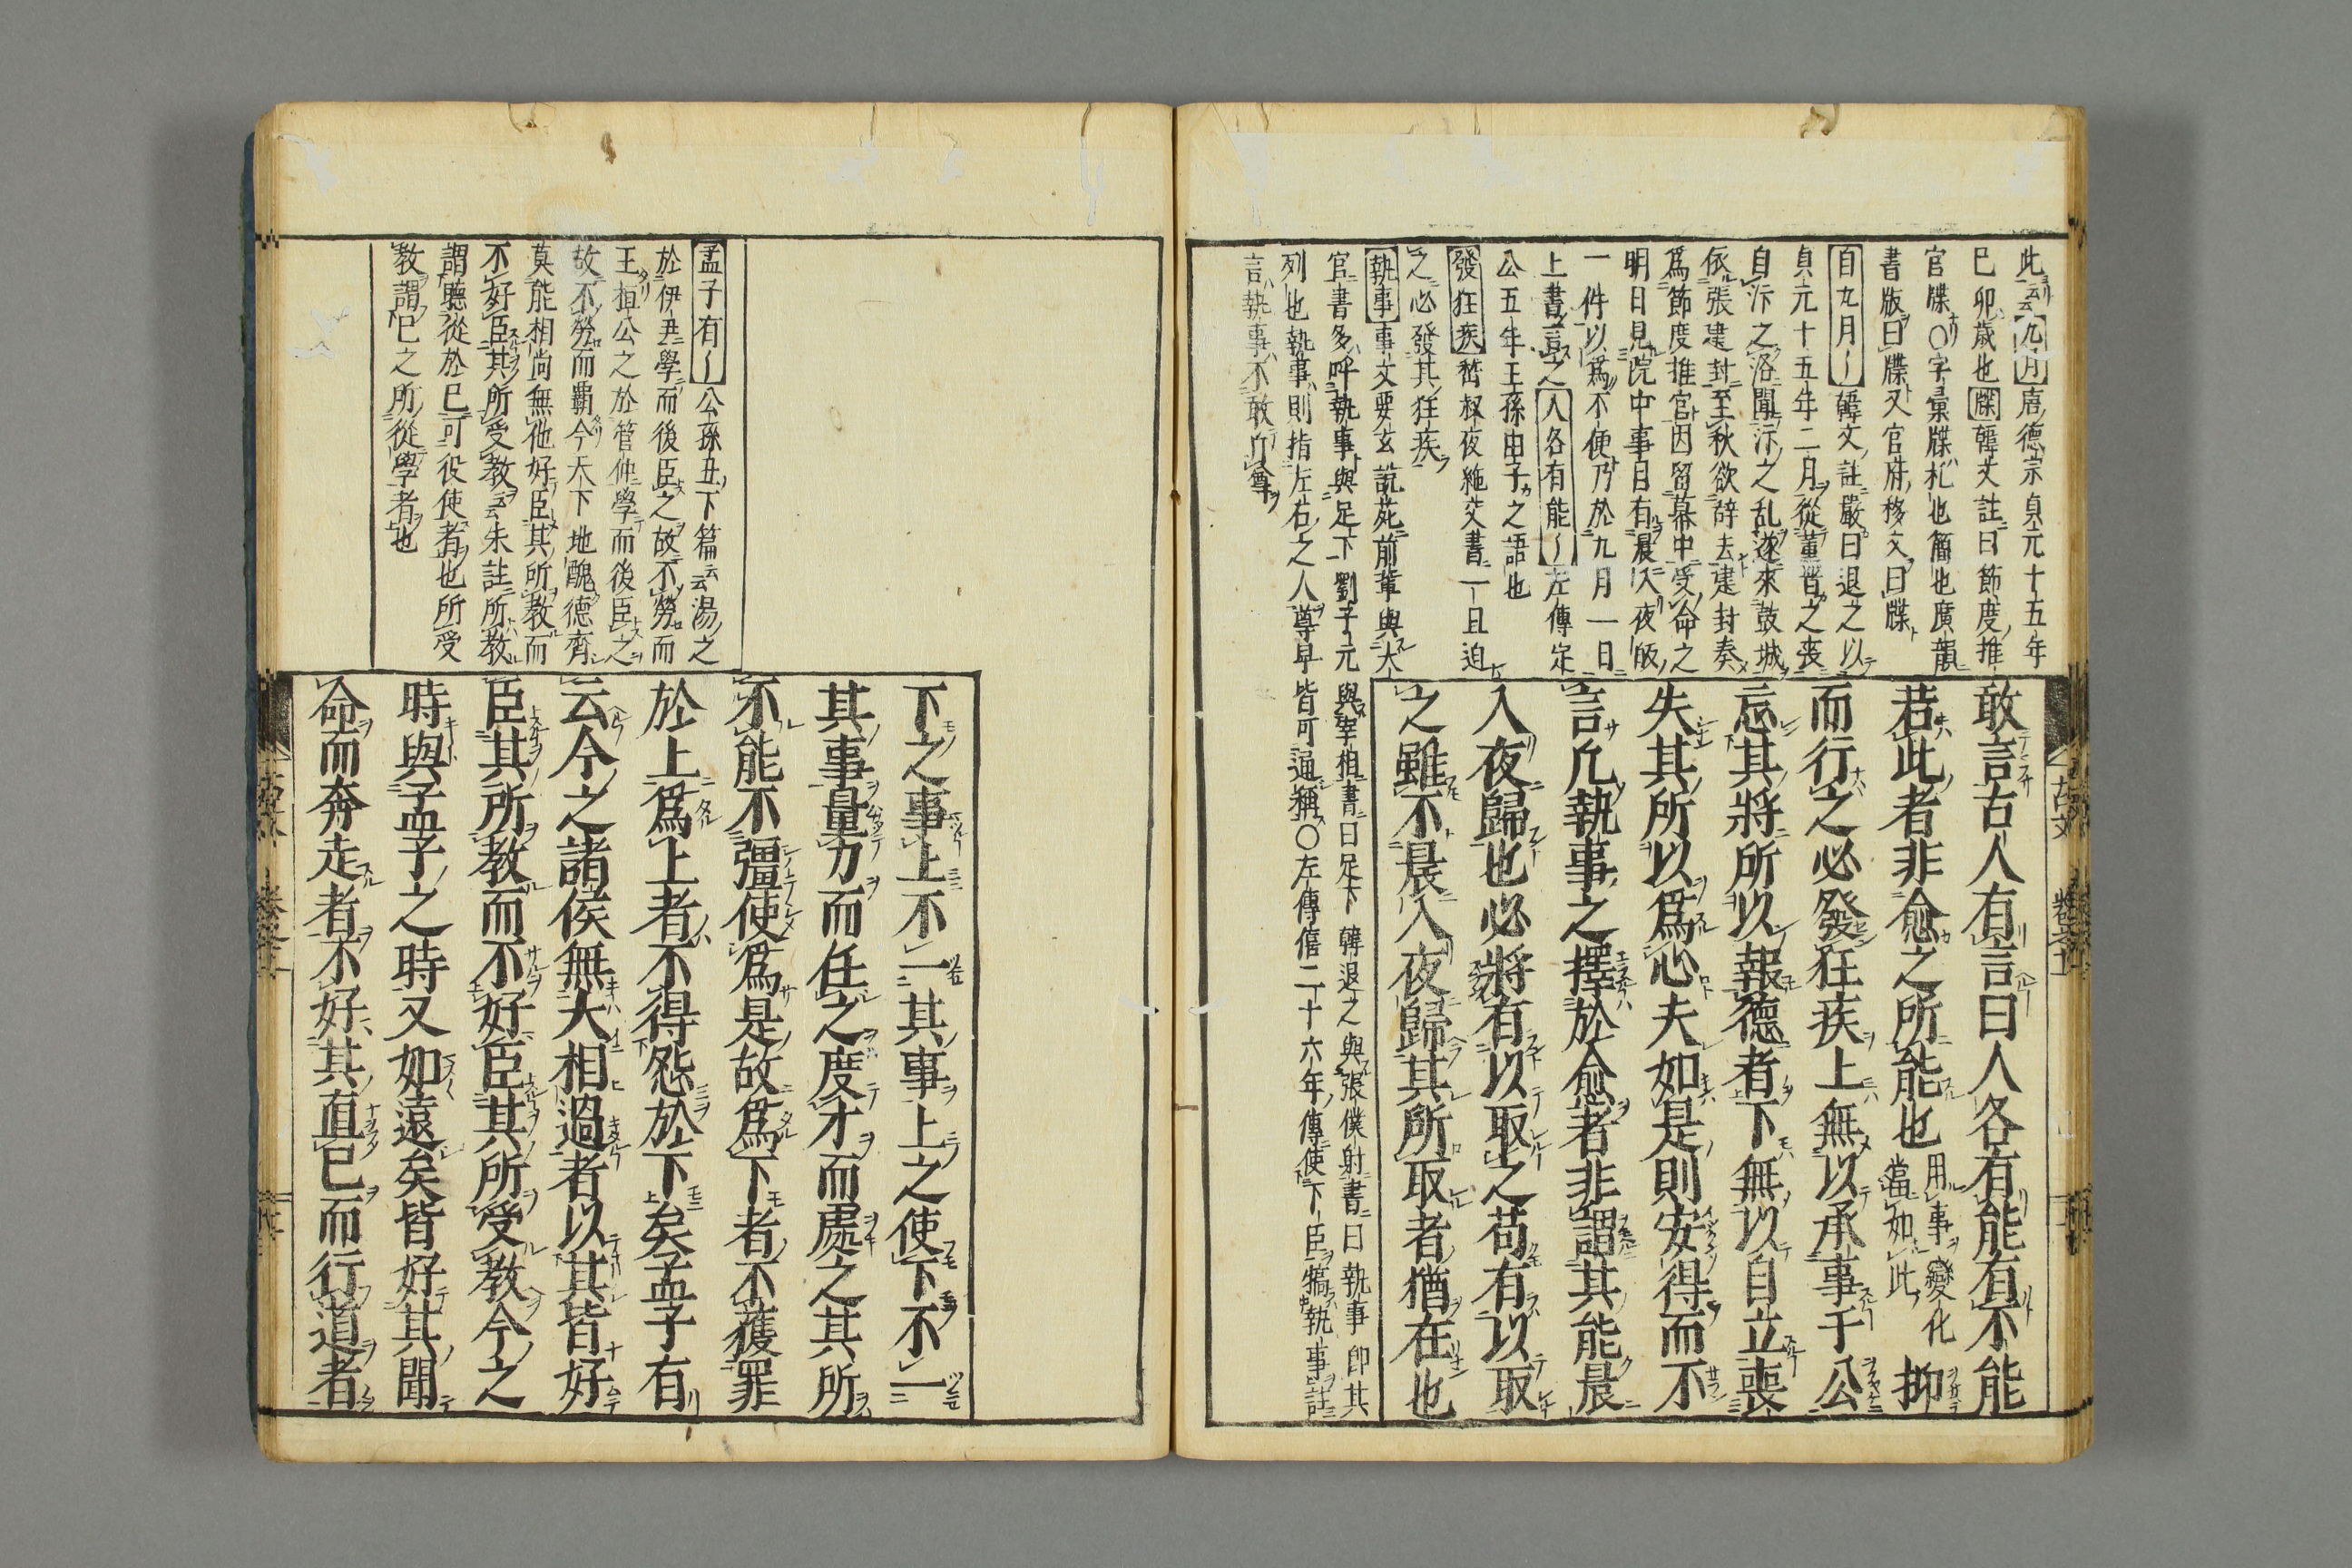 此云云九月唐德宗貞元十五年
巳卯歳也牒韓文註曰節度推
官牒〇字彙牒札也簡也廣韻
書版曰牒又官府移文曰牒
自九月〜韓文註嚴曰退之以
貞元十五年二月從董晋之喪
自汴之洛聞汴之乱遂來鼓城
依張建封至秋欲辞去建封奏
爲節度推官因留幕中受命之
明日見院中事目有晨入夜皈
一件以爲不便乃於九月一日
上書言之人各有能〜左傳定
公五年王孫由子之語也
發狂疾嵆叔夜絶交書一旦迫
之必發其狂疾
執事事文要玄説苑前軰與大
官書多呼執事與足下劉子元與宰相書曰足下韓退之與張僕射書曰執事即其
列也執事則指左右之人尊卑皆可通稱〇左傳僖二十六年傳使下臣犒執事註
言執事不敢斥尊
敢言古人有言曰人各有能有不能
若此者非愈之所能也用事變化當如此抑
而行之必發狂疾上無以承事于公
忘其將所以報德者下無以自立喪
失其所以爲心夫如是則安得而不
言凢執事之擇於愈者非謂其能晨
入夜歸也必將有以取之苟有以取
之雖不晨入夜歸其所取者猶在也
古文
孟子有〜公孫丑下篇云云湯之
於伊尹學而後臣之故不勞而
王桓公之於管仲學而後臣之
故不勞而覇今天下地醜德齊
莫能相尚無他好臣其所教而
不好臣其所受教云云朱註所教
謂聽從於巳可役使者也所受
教謂巳之所從學者也
下之事上不一其事上之使下不一
其事量力而任之度才而處之其所
不能不彊使爲是故爲下者不獲罪
於上爲上者不得怨於下矣孟子有
云今之諸侯無大相過者以其皆好
臣其所教而不好臣其所受教今之
時與孟子之時又如遠矣皆好其聞
命而奔走者不好其直巳而行道者